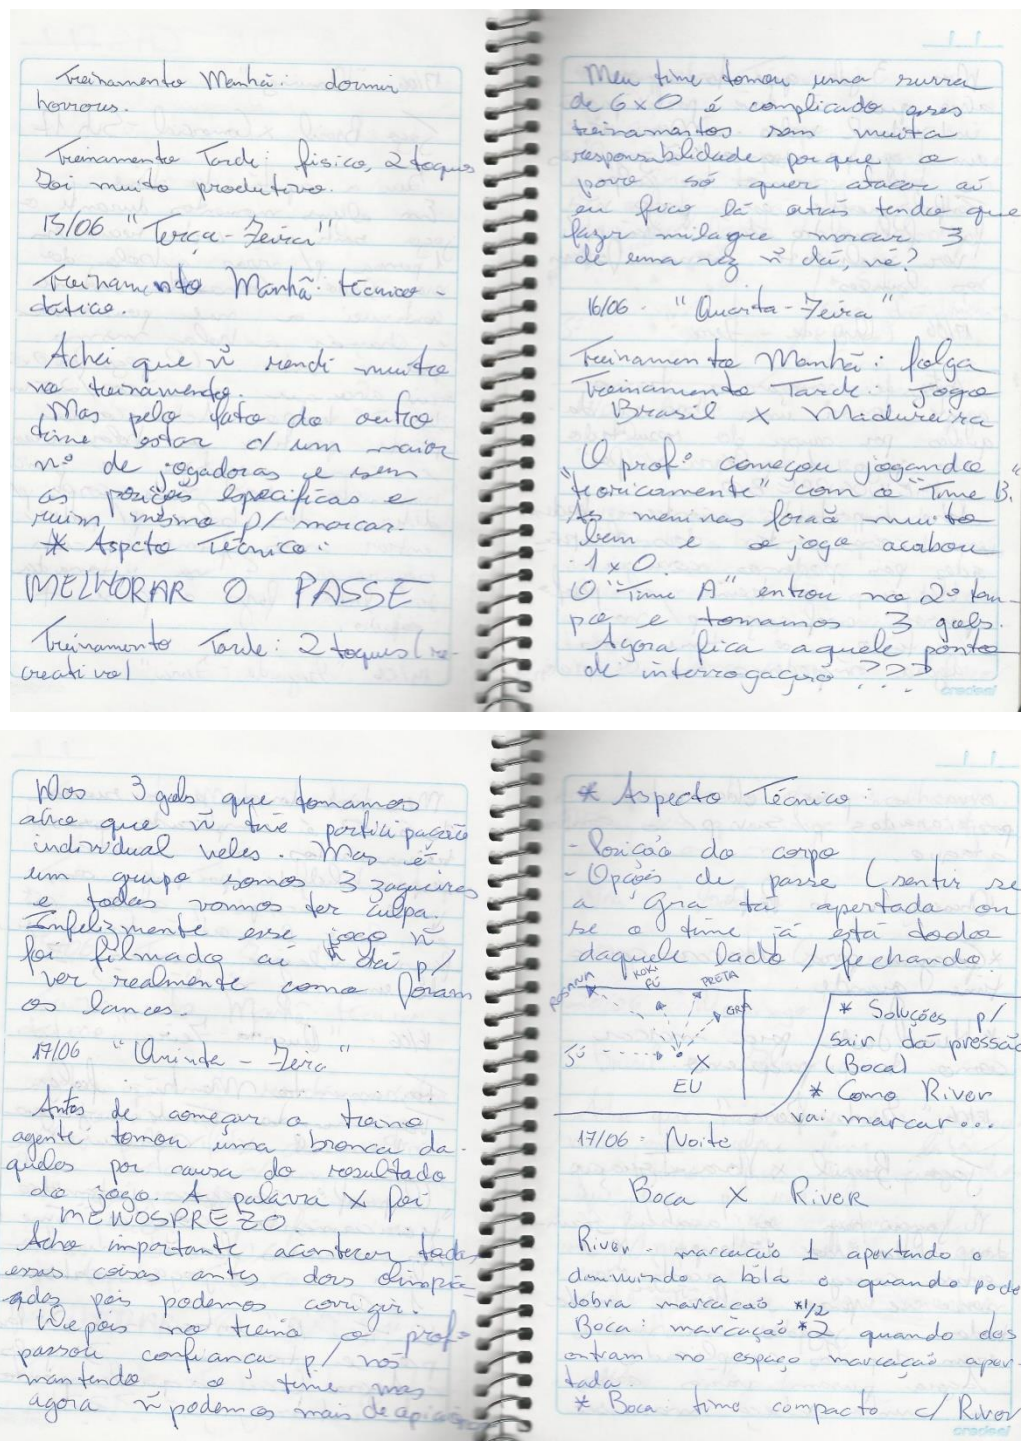 Treinamento Manhã: dormir
horrores.
Treinamento Tarde: físico, 2 toques
foi muito produtivo.
15/06 "Terça-Feira"
Treinamento Manhã: técnico-
tático.
Achei que ñ rendi muito
no treinamento.
Mas pelo fato do outro
time estar c/ um maior
nº de jogadoras e sem
as posições especificas e
ruim mesmo p/ marcar.
* Aspcto Técnico:
MELHORAR O PASSE
Treinamento Tarde: 2 toques (re-
creativo)
Meu time tomou uma surra
de 6x0 é complicado esses
treinamentos sem muita
responsabilidade porque o
povo só quer atacar aí
eu fico lá atrás tendo que
fazer milagre marcar 3
de uma vez ñ dá, né?
16/06 - "Quarta-Feira"
Treinamento Manhã: folga
Treinamento Tarde: Jogo
Brasil x Madureira
O profº começou jogando
"teoricamente" com o "Time B."
As meninas forão muito
bem e o jogo acabou
1x0.
O "Time A" entrou no 2º tem-
po e tomamos 3 gols.
Agora fica aquele ponto
de interrogação ???
credeal
Dos 3 gols que tomamos
acho que ñ tive participação
individual neles. Mas é
um grupo somos 3 zagueiras
e todas vamos ter culpa.
Infelizmente esse jogo ñ
foi filmado aí ñ dá p/
ver realmente como foram
os lances.
17/06 "Quinta-Feira"
Antes de começar o treino
agente tomou uma bronca da-
quelas por causa do resultado
do jogo. A palavra x foi
MENOSPREZO.
Acho importante acontecer todas
essas coisas antes dos olimpía-
das pois podemos corrigir.
Depois no treino o profº
passou confiança p/ nós
mantendo o time mas
agora ñ podemos mais
* Aspecto Técnico:
- Posição do corpo
- Opções de passe (sentir se
a Gra tá apertada ou
se o time já está todo
daquele lado / fechando.
ROSANA
KOKI
FÚ
PRETA
GRA
JÚ
X
EU
* Soluções p/
sair da pressão
(Boca)
* Como River
vai marcar...
17/06 - Noite
Boca X River
River - marcação 1 apertando o
diminuindo a bola e quando pode
dobra marcacao *1/2
Boca: marcação *2 quando dos
entram no espaço marcação aper-
tada.
* Boca time compacto c/ River
credeal